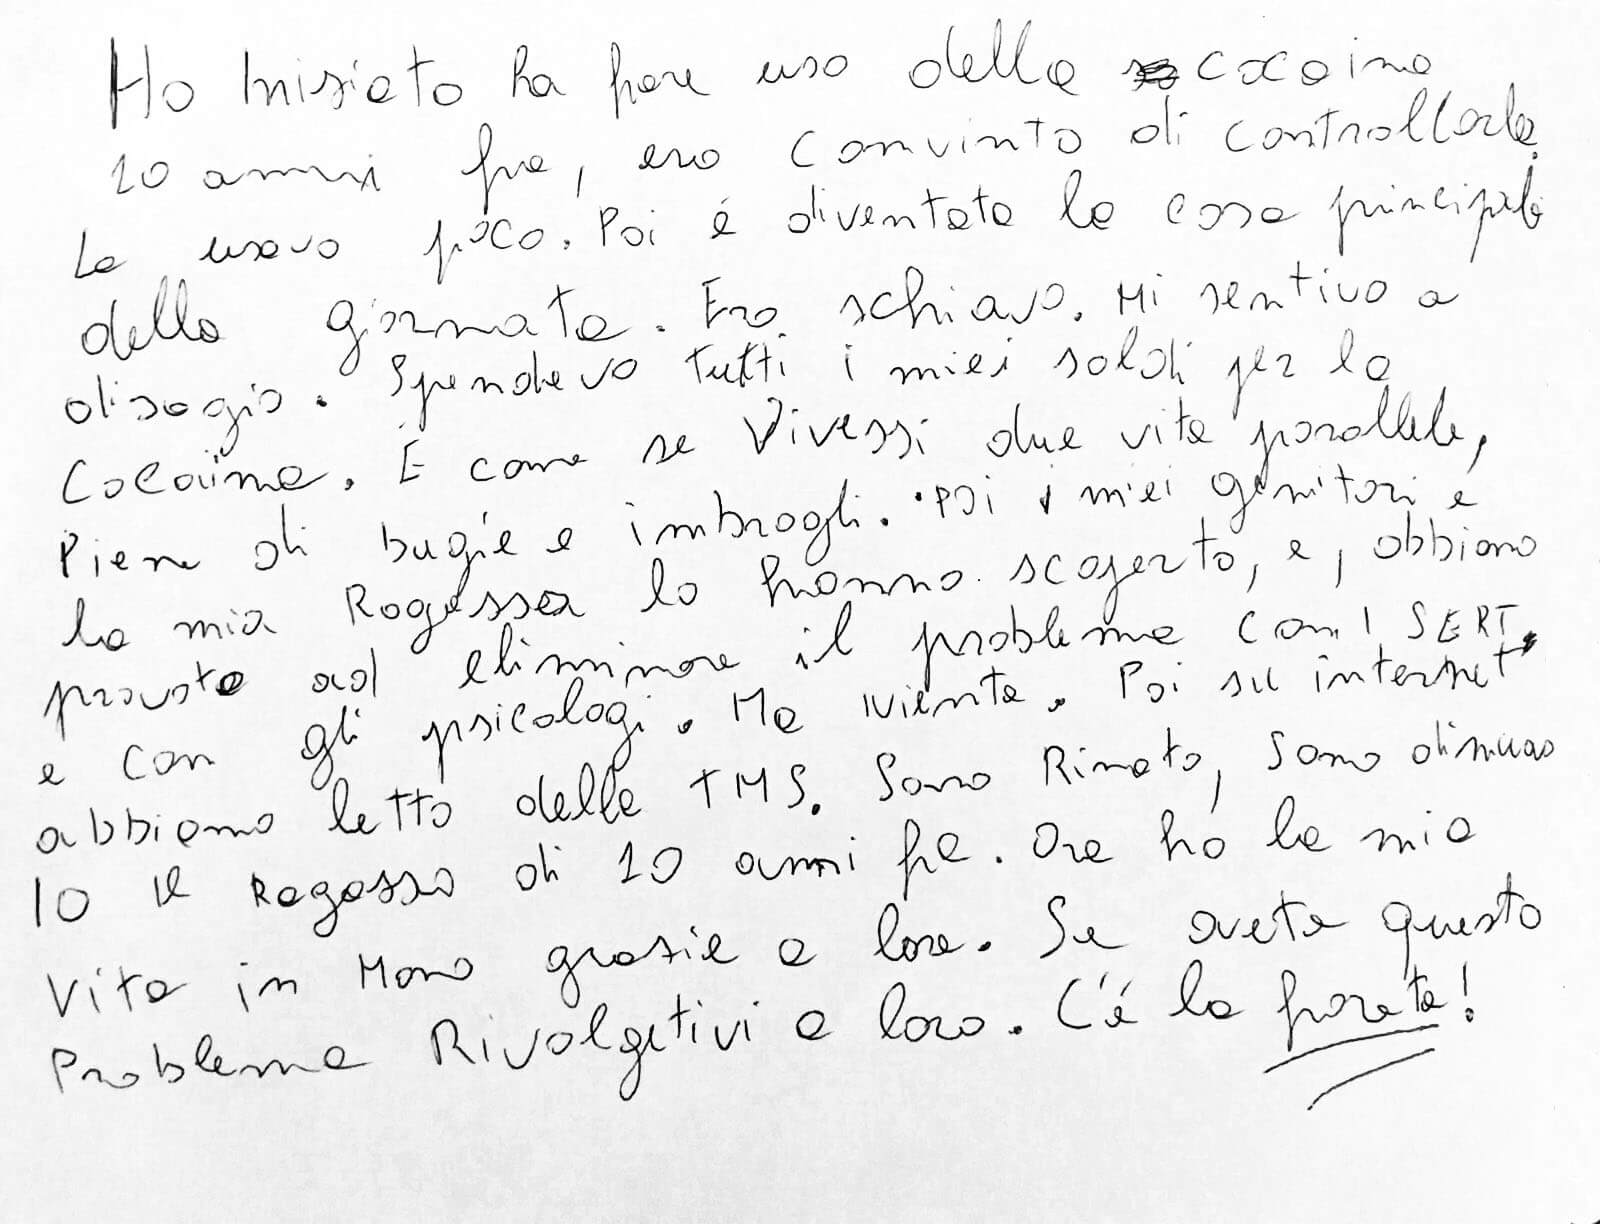 Ho Inisiato ha fare uso della cocaina
10 anni fa, ero convinto di controllarla.
La usavo poco. Poi é diventata la cosa principale
della giornata. Ero schiavo. Mi sentivo a
disagio. Spendevo tutti i miei soldi per la
Cocaina. É come se Vivessi due vite parallele,
Piene di bugie e imbrogli. Poi i miei genitori e
la mia Ragassa lo hanno scoperto, e, abbiamo
provato ad eliminare il problema con l SERT,
e con gli psicologi. Ma Niente. Poi su internet
abbiamo letto della TMS. Sono Rinato, sono di nuovo
IO il Ragasso di 10 anni fa. Ora ho la mia
Vita in Mano grasie a loro. Se avete questo
Problema Rivolgetivi a loro. C'é la farete!